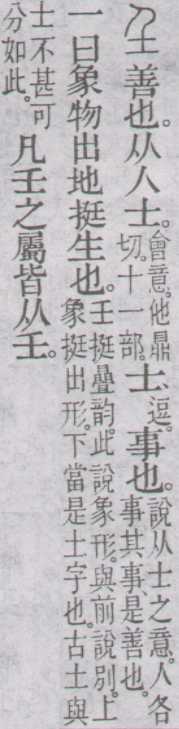 𡈼善也。从人士。會意。他鼎切。十一部。士、逗。事也。說从士之意。人各事其事、是善也。
一曰象物出地挺生也。𡈼挺疊韵。此說象形。與前說別。上象挺出形。下當是土字也。古土與
士不甚可分如此。凡𡈼之屬皆从𡈼。